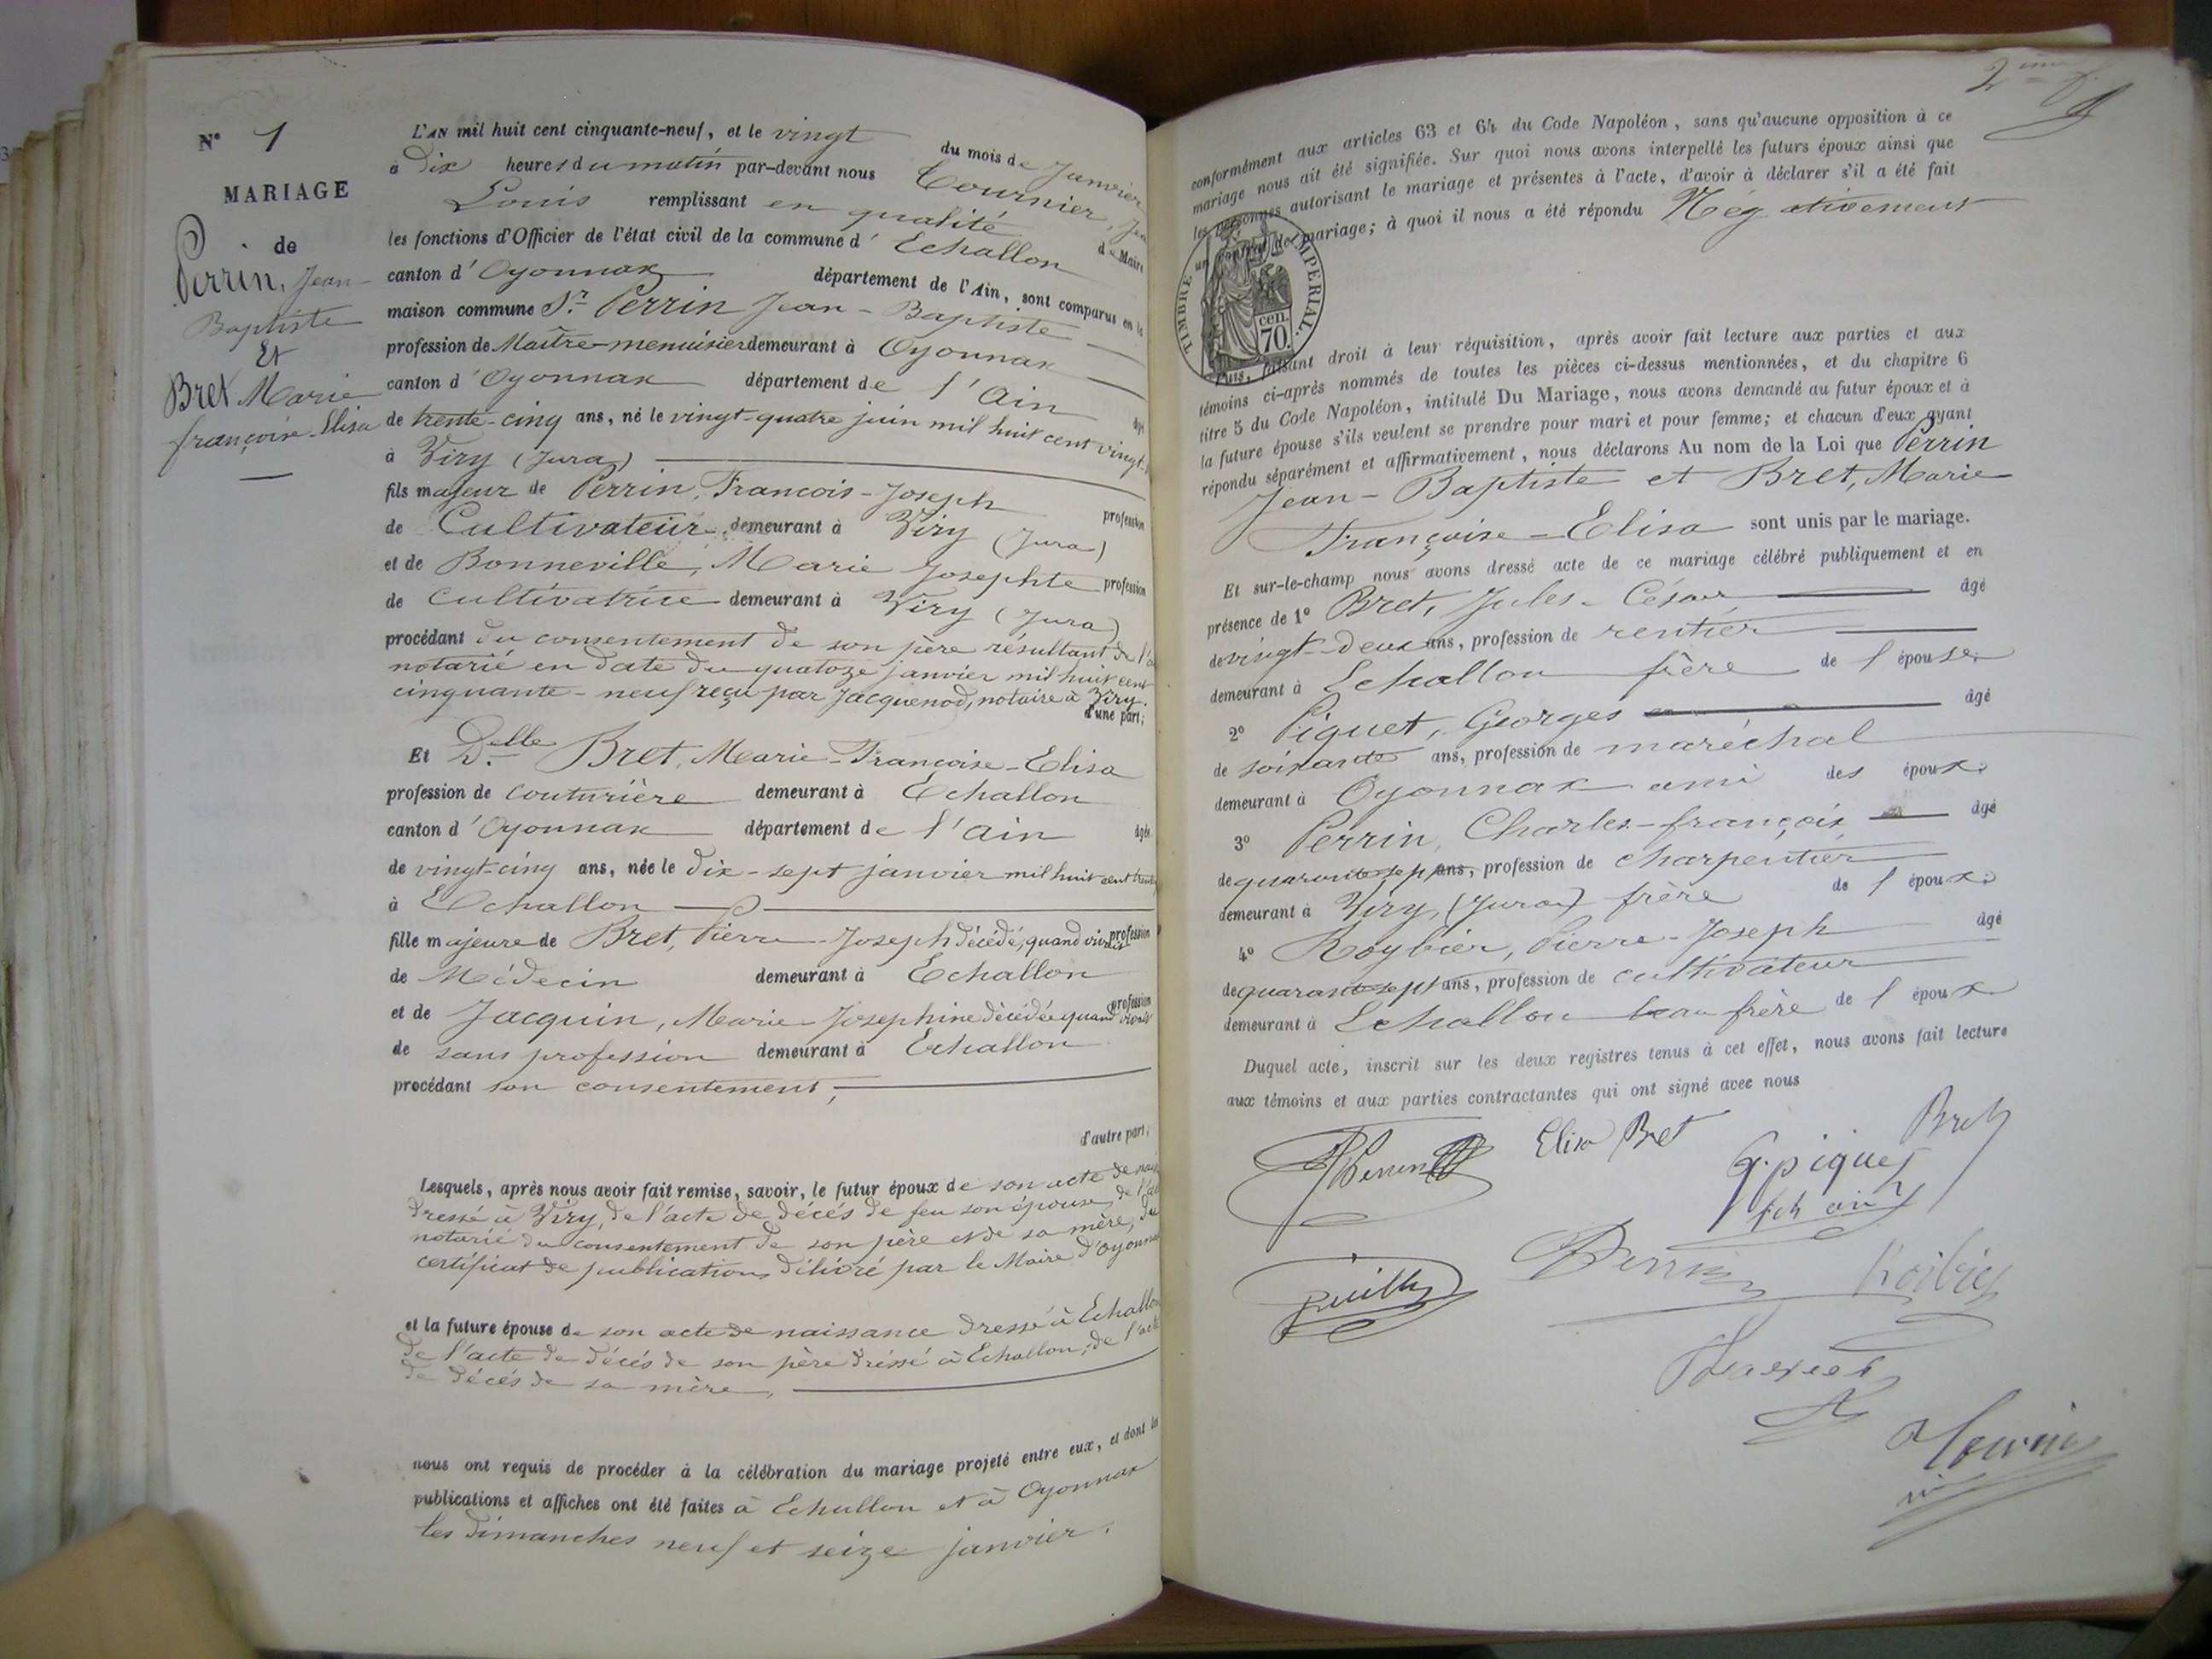 N° 1
MARIAGE
de
Perrin, Jean-
Baptiste
Et
Bret Marie
françoise-Elisa
L'AN mil huit cent cinquante-neuf, et le vingt du mois de Janvier
à Dix heures du matin par-devant nous Tournier,
Louis remplissant en qualité de Maire
les fonctions d'Officier de l'état civil de la commune d' Echallon
canton d' Oyonnax département de l'Ain, sont comparus en la
maison commune Sr. Perrin Jean-Baptiste
profession de Maître-menuisier demeurant à Oyonnax
canton d' Oyonnax département de l'Ain
de trente-cinq ans, né le vingt-quatre juin mil huit cent vingt-
à Viry (Jura)
fils majeur de Perrin, Francois-Joseph profession
de Cultivateur demeurant à Viry (Jura)
et de Bonneville, Marie Josephte profession
de Cultivatrice demeurant à Viry (Jura)
procédant du consentement de son père résultant de l'
notarié en date du quatoze janvier mil huit cent
cinquante-neuf reçu par Jacquenod, notaire à Viry.
d'une part;
Et Delle Bret, Marie-Françoise-Elisa
profession de couturière demeurant à Echallon
canton d' Oyonnax département de l'Ain âgée
de vingt-cinq ans, née le dix-sept janvier mil huit cent
à Echallon
fille majeure de Bret, Pierre-Joseph décédé, quand vivait profession
de Médecin demeurant à Echallon
et de Jacquin, Marie-Josephine décédée quand vivait profession
de sans profession demeurant à Echallon
procédant son consentement;
d'autre part;
Lesquels, après nous avoir fait remise, savoir, le futur époux de son acte de
dressé à Viry, de l'acte de décés de feu son épouse, de l'
notarié du consentement de son père et de sa mère, du
certificat de publications délivré par le Maire d'Oyonnax
et la future épouse de son acte de naissance dressé à Echallon
de l'acte de décés de son père dressé à Echallon, de l'acte
de décés de sa mère,
nous ont requis de procéder à la célébration du mariage projeté entre eux, et dont les
publications et affiches ont été faites à Echallon et à Oyonnax
les dimanches neuf et seize janvier.
conformément aux articles 63 et 64 du Code Napoléon, sans qu'aucune opposition à ce
mariage nous ait été signifiée. Sur quoi nous avons interpellé les futurs époux ainsi que
les personnes autorisant le mariage et présentes à l'acte, d'avoir à déclarer s'il a été fait
un contrat de mariage; à quoi il nous a été répondu Négativement
TIMBRE IMPERIAL.
70 cen.
Puis, faisant droit à leur réquisition, après avoir fait lecture aux parties et aux
témoins ci-après nommés de toutes les pièces ci-dessus mentionnées, et du chapitre 6
titre 5 du Code Napoléon, intitulé Du Mariage, nous avons demandé au futur époux et à
la future épouse s'ils veulent se prendre pour mari et pour femme; et chacun d'eux ayant
répondu séparément et affirmativement, nous déclarons Au nom de la Loi que Perrin
Jean-Baptiste et Bret, Marie
Françoise-Elisa sont unis par le mariage.
Et sur-le-champ nous avons dressé acte de ce mariage célébré publiquement et en
présence de 1° Bret, Jules-César âgé
de vingt-deux ans, profession de rentier
demeurant à Echallon frère de l'épouse.
2° Piquet, Georges âgé
de soixante ans, profession de maréchal
demeurant à Oyonnax ami des époux.
3° Perrin, Charles-françois âgé
de quarante-sept ans, profession de charpentier
demeurant à Viry, (Jura) frère de l'époux.
4° Roybier, Pierre-Joseph âgé
de quarante-sept ans, profession de cultivateur
demeurant à Echallon beau frère de l'époux
Duquel acte, inscrit sur les deux registres tenus à cet effet, nous avons fait lecture
aux témoins et aux parties contractantes qui ont signé avec nous
Perrin Elisa Bret Bret
G. piquet
Perrin Roibier